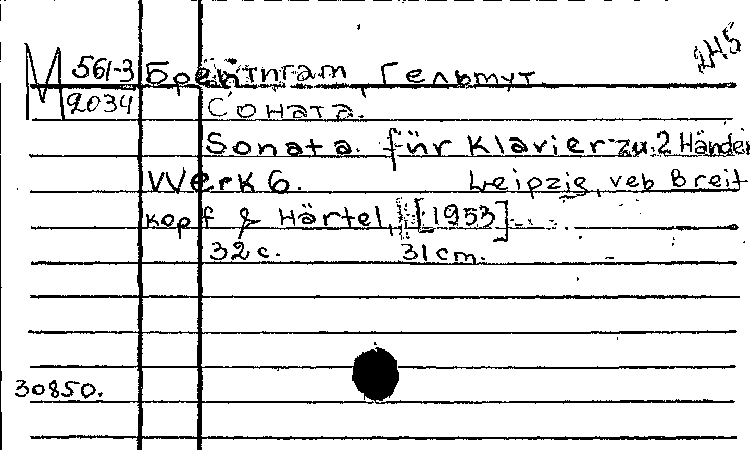 245
М 561-3 Брейтигам, Гельмут
2034 Соната.
Sonata. für Klavier zu 2 Händen
Werk 6. Leipzig, veb Breit
kopf & Härtel, [1953]
32 с. 31 cm.
30850.